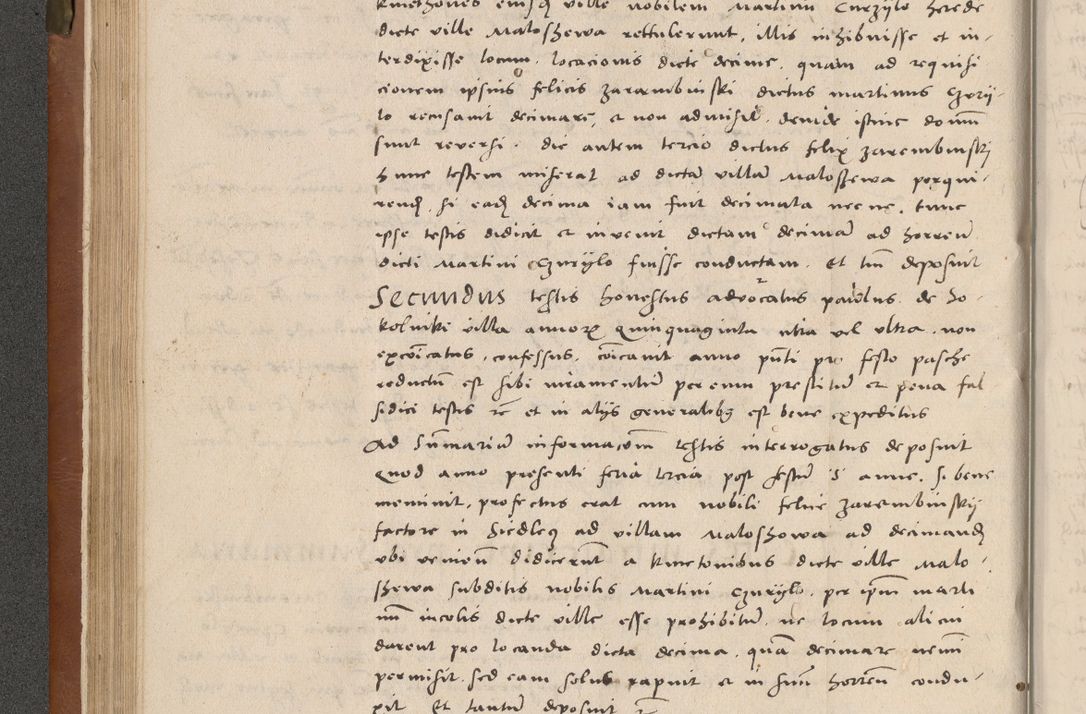 kmethones eiusq ville nobilem Martinu Czuryło herede
dicte ville Maloszewa rettulerunt, illis inhibuisse et in-
terdixisse locum locacionis dicte decime, quam ad requisi
cionem ipsius felicis zarambinski dictus martinus Czurij-
lo recusavit decimare, et non admisit, deinde istinc domu
sunt reversi. die autem tercio dictus felix zarembinskij
hunc testem miserat ad dicta villa Maloszewa perqui-
rend, si eadē decima iam fuit decimata nec ne, tunc
ipse testis didicit et invenit dictam decimā ad horreū
dicti Martini Czuryło fuisse conductam. Et tm̄ deposuit
Secundus testis honestus advocatus paulus de So-
kolniki villa annor quinquaginta citra vel ultra, non
excoīcatus, confessus, coīcavit anno pn̄ti pro festo pasche
reductū est sibi iuramentū per eum prestitū et pena fal
sidici testis rc et in alijs generalibꝫ est bene expeditus
Ad Sūmariā informacom testis interrogatus deposuit
Quod anno presenti feria tercia post festū S anne, si bene
meminit, profectus erat cum nobili felice zarembinskij
factore in Siedlecz ad villam Maloszowa ad decimandū
ubi venien didicerūt a kmetonibus dicte ville Malo-
szewa subditis nobilis Martini Czuryło, per ipm marti
nū incolis dicte ville esse prohibitū, ne locum alicui
darent pro locanda dicta decima, quā decimare nemi
permisit, sed eam solus rapuit et in suū horreū condu-
xit Et tantū deposuit rc